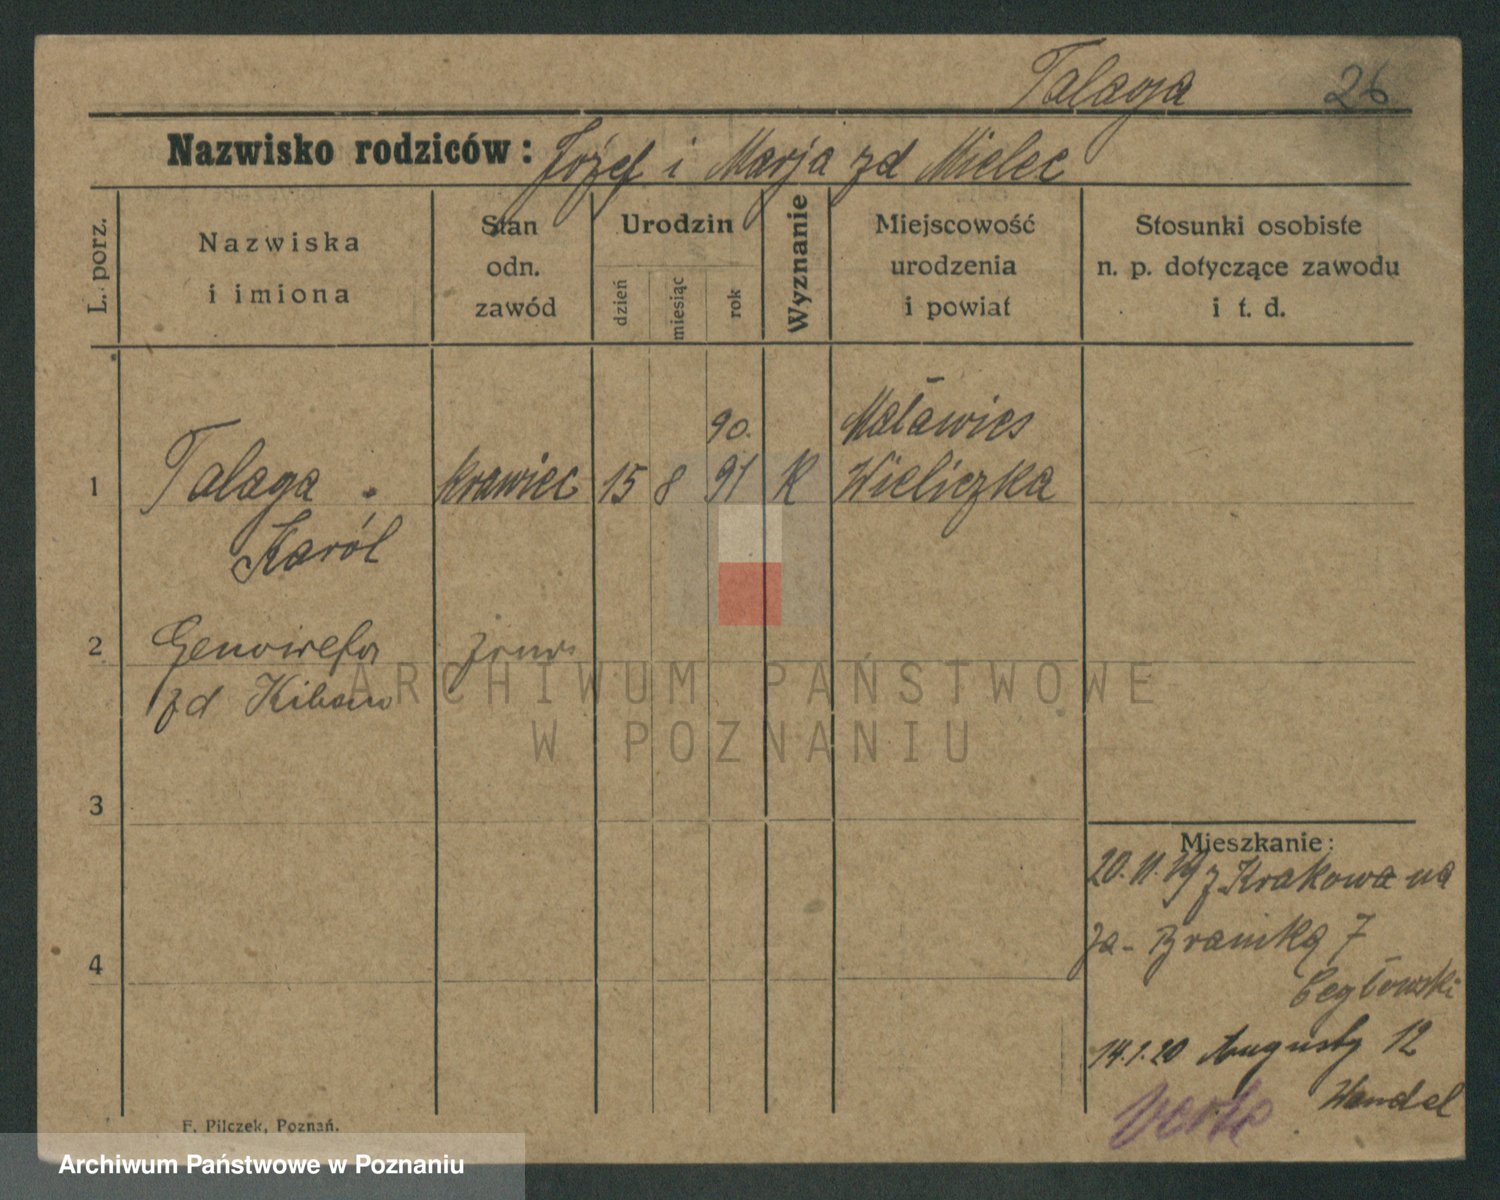 Talaga 26
Nazwisko rodziców: Józef i Marja zd Mielec
L. porz.
Nazwiska
i imiona
Stan
odn.
zawód
Urodzin
dzień
miesiąc
rok
Wyznanie
Miejscowość
urodzenia
i powiat
Stosunki osobiste
n. p. dotyczące zawodu
i t. d.
90.
1 Talaga krawiec 15 8 91 K Wieliczka
Karól
2 Genowefa żona
zd
3
4
Mieszkanie:
20.11.19 z Krakowa na
Za-Bramką 7
Cegłowski
14.1.20 Augusty 12
Wendel
verte
F. Pilczek, Poznań.
ARCHIWUM PAŃSTWOWE
W POZNANIU
Archiwum Państwowe w Poznaniu